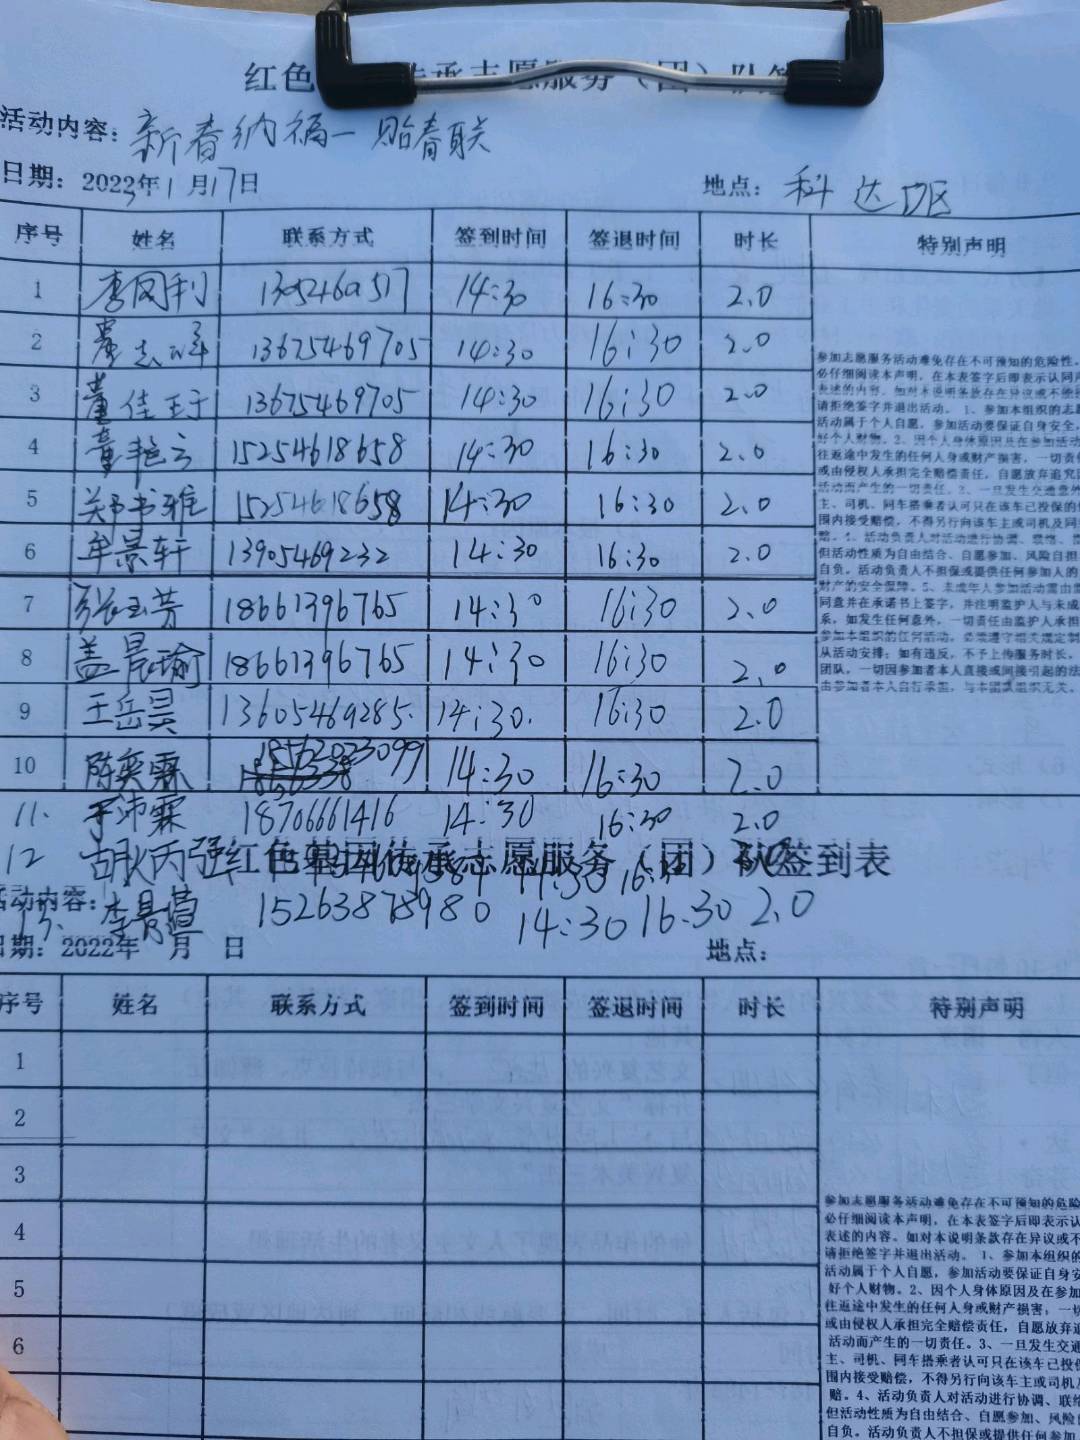 红色 传承志愿服务（团）队签
活动内容：新春纳福一贴春联
日期：2023年1月17日 地点：科达 区
序号 姓名 联系方式 签到时间 签退时间 时长 特别声明
1 李同利 1305460517 14:30 16:30 2.0
2 董志峰 13675469705 14:30 16:30 2.0
3 董佳玉于 13675469705 14:30 16:30 2.0
4 董艳云 15254618658 14:30 16:30 2.0
5 郑书雅 15254618658 14:30 16:30 2.0
6 牟景轩 13905469232 14:30 16:30 2.0
7 张玉芳 18661396765 14:30 16:30 2.0
8 盖晨瑜 18661396765 14:30 16:30 2.0
9 王岳昊 13605469285. 14:30. 16:30 2.0
10 陈奕霖 18563023099 14:30 16:30 2.0
11. 于沛霖 18706661416 14:30 16:30 2.0
参加志愿服务活动难免存在不可预知的危险性，
必仔细阅读本声明，在本表签字后即表示认同
表述的内容。如对本说明条款存在异议或不能
请拒绝签字并退出活动。 1、参加本组织的志
活动属于个人自愿，参加活动要保证自身安全，
好个人财物。2、因个人身体原因及在参加活动
往返途中发生的任何人身或财产损害，一切责
或由侵权人承担完全赔偿责任，自愿放弃追究
活动而产生的一切责任。3、一旦发生交通意外
主、司机、同车搭乘者认可只在该车已投保的
围内接受赔偿，不得另行向该车主或司机及同
赔。4、活动负责人对活动进行协调、联络、
但活动性质为自由结合、自愿参加、风险自担
自负。活动负责人不担保或提供任何参加人的
财产的安全保障。5、未成年人参加活动需由
同意并在承诺书上签字，并注明监护人与未成
系，如发生任何意外，一切责任由监护人承担
参加本组织的任何活动，必须遵守相关规定制
从活动安排；如有违反，不予上传服务时长，
团队，一切因参加者本人直接或间接引起的法
由参加者本人自行承担，与本团队组织无关。
红色基因传承志愿服务（团）队签到表
12 14:30 16:
活动内容：
13. 李 萱 15263878980 14:30 16.30 2.0
日期：2022年 月 日 地点：
序号 姓名 联系方式 签到时间 签退时间 时长 特别声明
1
2
3
4
5
6
参加志愿服务活动难免存在不可预知的危险
必仔细阅读本声明，在本表签字后即表示认
表述的内容。如对本说明条款存在异议或不
请拒绝签字并退出活动。 1、参加本组织的
活动属于个人自愿，参加活动要保证自身安
好个人财物。2、因个人身体原因及在参加
往返途中发生的任何人身或财产损害，一切
或由侵权人承担完全赔偿责任，自愿放弃追
活动而产生的一切责任。3、一旦发生交通
主、司机、同车搭乘者认可只在该车已投保
围内接受赔偿，不得另行向该车主或司机及
赔。4、活动负责人对活动进行协调、联络
但活动性质为自由结合、自愿参加、风险
自负。活动负责人不担保或提供任何参加